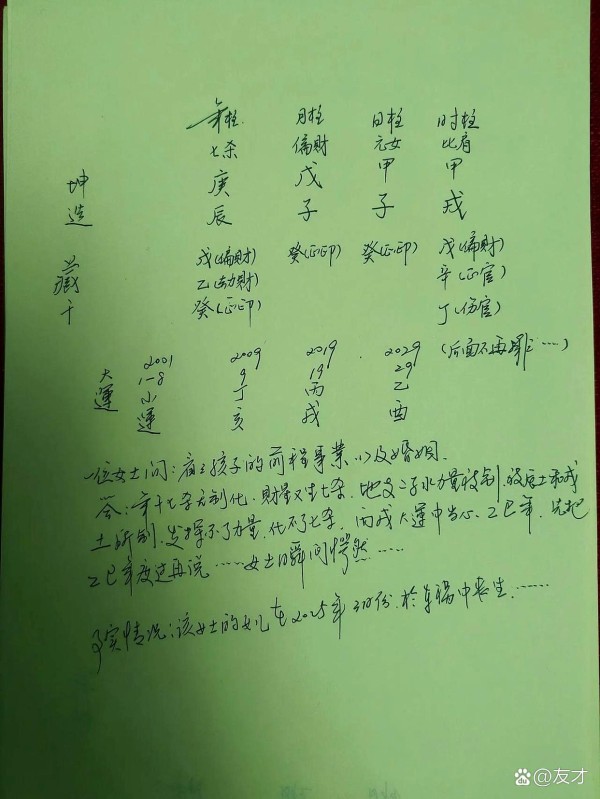 年柱 月柱 日柱 时柱
七杀 偏财 元女 比肩
坤造 庚 戊 甲 甲
辰 子 子 戌
藏干 戊(偏财) 癸(正印) 癸(正印) 戊(偏财)
乙(劫财) 辛(正官)
癸(正印) 丁(伤官)
(后面不再排……)
大運 2001 2009 2019 2029
1-8 9 19 29
小 丁 丙 乙
運 亥 戌 酉
一位女士问:看看孩子的前程事業以及婚姻.
答:年干七杀无制化,财星又生七杀,地支子水力量被制,被辰土和戌
土所制,发挥不了力量,化不了七杀,丙戌大運中当心乙巳年,先把
乙巳年度过再说……女士瞬间愕然……
事实情况:该女士的女儿在2025年3月份,於车祸中丧生.……
友才